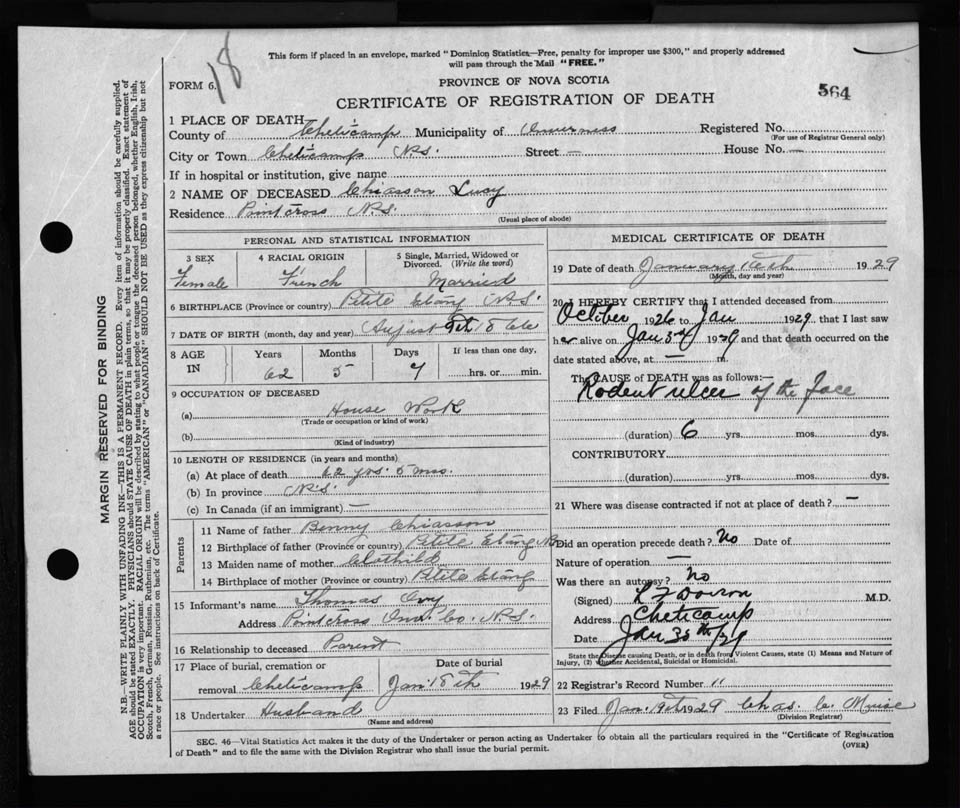 18
This form if placed in an envelope, marked "Dominion Statistics—Free, penalty for improper use $300," and properly addressed
will pass through the Mail "FREE."
FORM 6.
PROVINCE OF NOVA SCOTIA
564
CERTIFICATE OF REGISTRATION OF DEATH
1 PLACE OF DEATH
County of Cheticamp Municipality of Inverness Registered No.
(For use of Registrar General only)
City or Town Cheticamp N.S. Street — House No. —
If in hospital or institution, give name
2 NAME OF DECEASED Chiasson Lucy
Residence Pointcross N.S.
(Usual place of abode)
PERSONAL AND STATISTICAL INFORMATION
3 SEX 4 RACIAL ORIGIN 5 Single, Married, Widowed or Divorced. (Write the word)
Female French Married
6 BIRTHPLACE (Province or country) Petite Etang N.S.
7 DATE OF BIRTH (month, day and year) August
8 AGE IN Years Months Days If less than one day,
62 5 hrs. or min.
9 OCCUPATION OF DECEASED
(a) House Work
(Trade or occupation or kind of work)
(b)
(Kind of industry)
10 LENGTH OF RESIDENCE (in years and months)
(a) At place of death 62 yrs. 5 mos.
(b) In province N.S.
(c) In Canada (if an immigrant) —
Parents
11 Name of father Benny Chiasson
12 Birthplace of father (Province or country) Petite Etang N.S.
13 Maiden name of mother Clothild
14 Birthplace of mother (Province or country) Petite Etang
15 Informant's name Thomas
Address Pointcross Inv. Co. N.S.
16 Relationship to deceased Parent
17 Place of burial, cremation or Date of burial
removal Cheticamp Jan. 18th 1929
18 Undertaker Husband
(Name and address)
MEDICAL CERTIFICATE OF DEATH
19 Date of death January 16th 1929
(Month, day and year)
20 I HEREBY CERTIFY that I attended deceased from
October 1926 to Jan 1929 that I last saw
her alive on Jan 1929 and that death occurred on the
date stated above, at — m.
The CAUSE of DEATH was as follows:—
Rodent ulcer of the face
(duration) 6 yrs. mos. dys.
CONTRIBUTORY
(duration) yrs. mos. dys.
21 Where was disease contracted if not at place of death? —
Did an operation precede death? No Date of
Nature of operation —
Was there an autopsy? no
(Signed) M.D.
Address Cheticamp
Date Jan
State the Disease causing Death, or in death from Violent Causes, state (1) Means and Nature of
Injury, (2) whether Accidental, Suicidal or Homicidal.
22 Registrar's Record Number 11
23 Filed Jan. 1929 Chas. C. Muise
(Division Registrar)
SEC. 46—Vital Statistics Act makes it the duty of the Undertaker or person acting as Undertaker to obtain all the particulars required in the "Certificate of Registration
of Death" and to file the same with the Division Registrar who shall issue the burial permit.
(OVER)
MARGIN RESERVED FOR BINDING
N.B.—WRITE PLAINLY WITH UNFADING INK—THIS IS A PERMANENT RECORD. Every item of information should be carefully supplied.
AGE should be stated EXACTLY. PHYSICIANS should STATE CAUSE OF DEATH in plain terms, so that it may be properly classified. Exact statement of
OCCUPATION is very important. RACIAL ORIGIN will be described by stating to what people or tongue the deceased person belonged, whether English, Irish,
Scotch, French, German, Russian, Ruthenian, etc. The terms "AMERICAN" or "CANADIAN" SHOULD NOT BE USED as they express citizenship but not
a race or people. See instructions on back of Certificate.